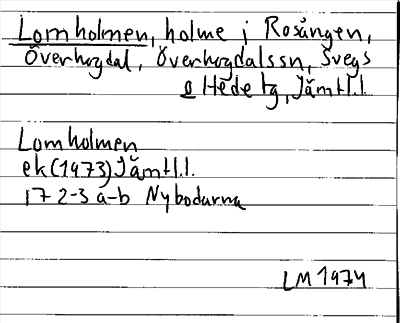 Lomholmen, holme i Rosången,
Överhogdal, Överhogdalssn, Svegs
o Hede tg, Jämtl.l.
Lomholmen
ek (1973) Jämtl.l.
17 2-3 a-b Nybodarna
LM 1974